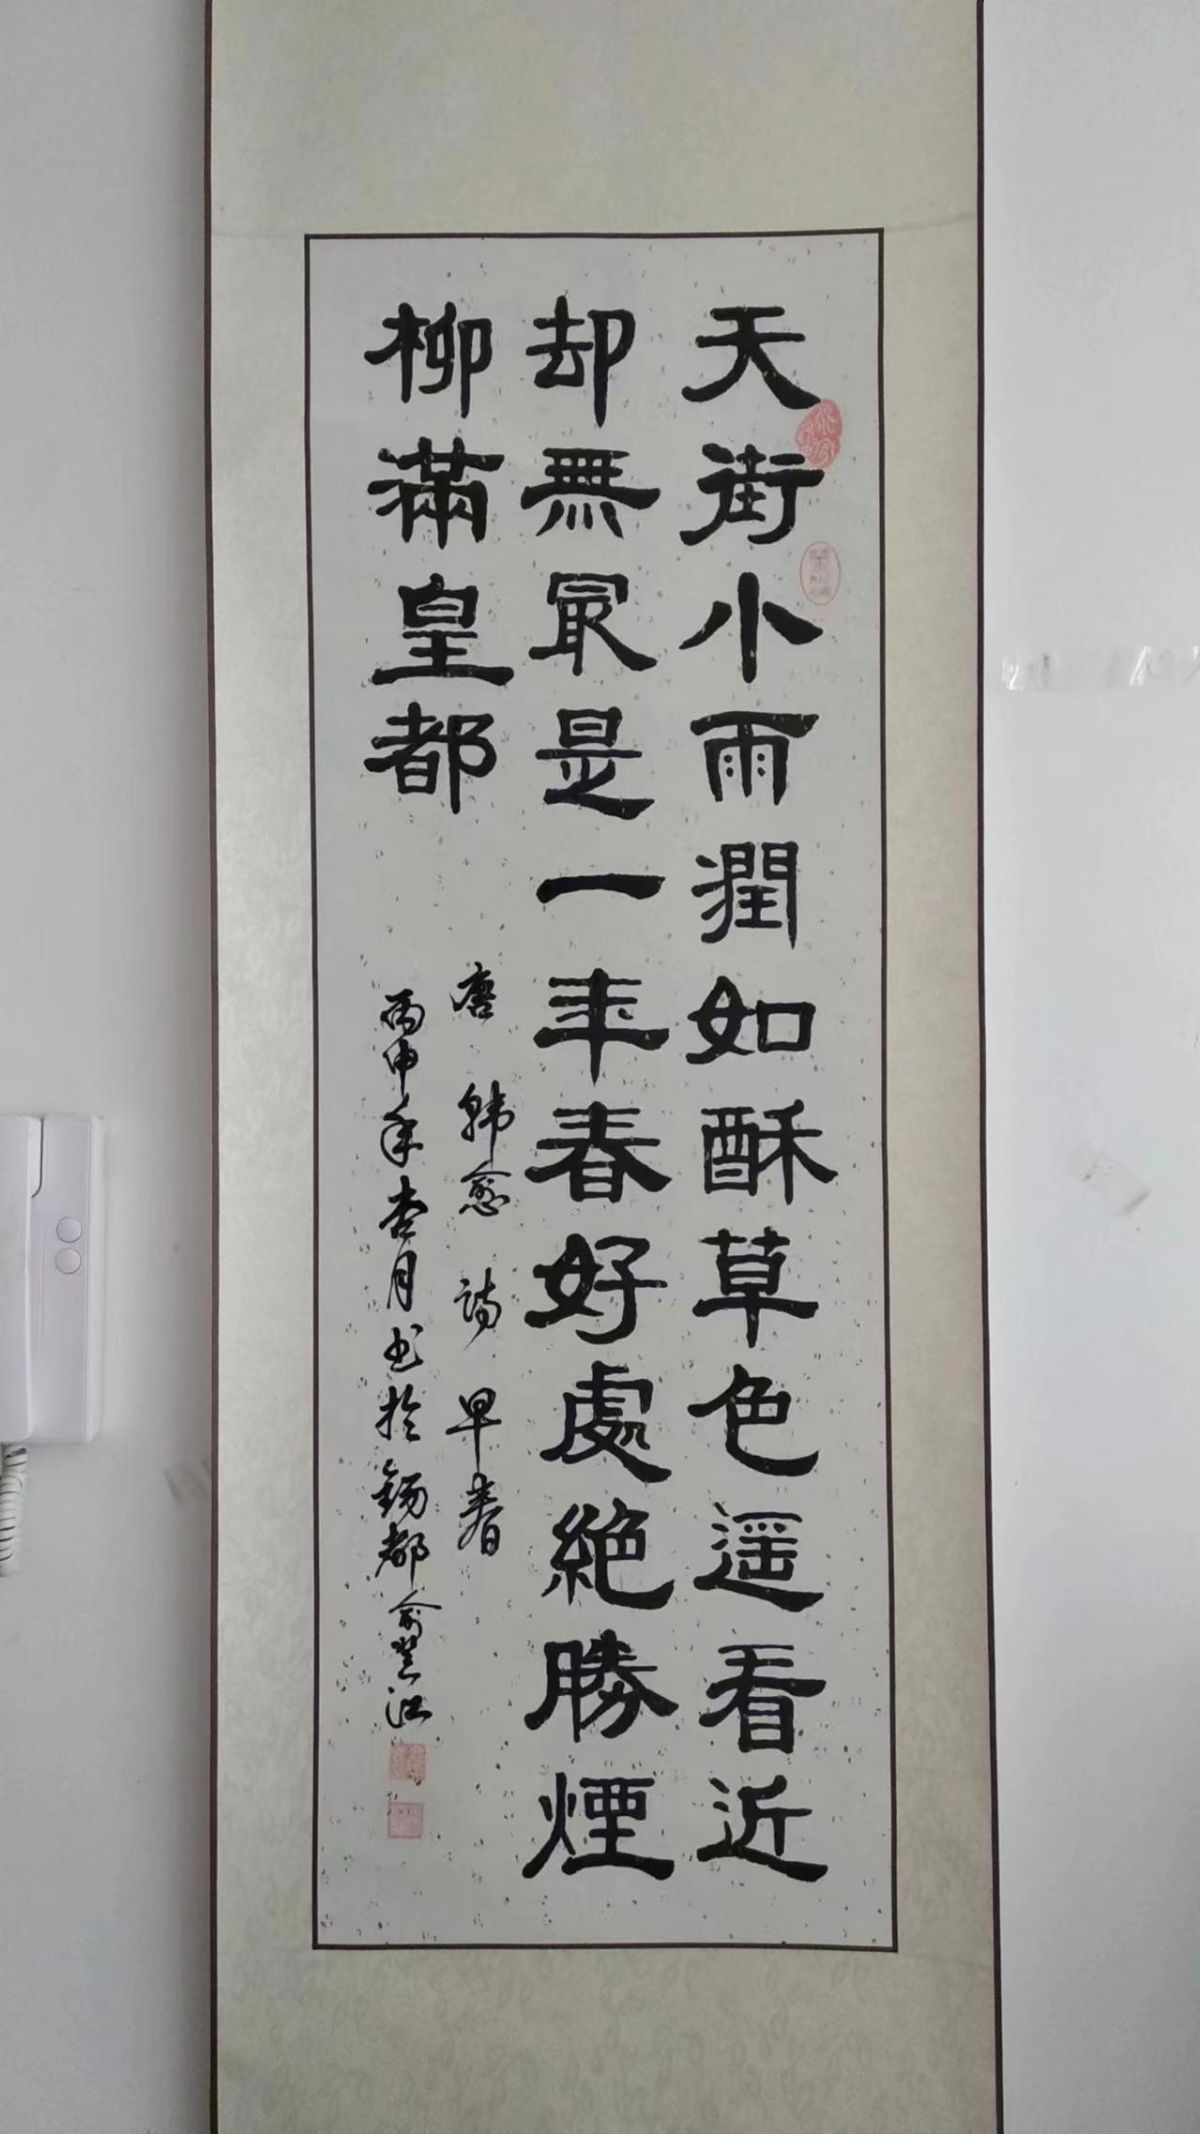 天街小雨潤如酥草色遥看近
却無最是一年春好處絶勝煙
柳滿皇都
唐韓愈詩早春
丙申年杏月书於錫都俞江